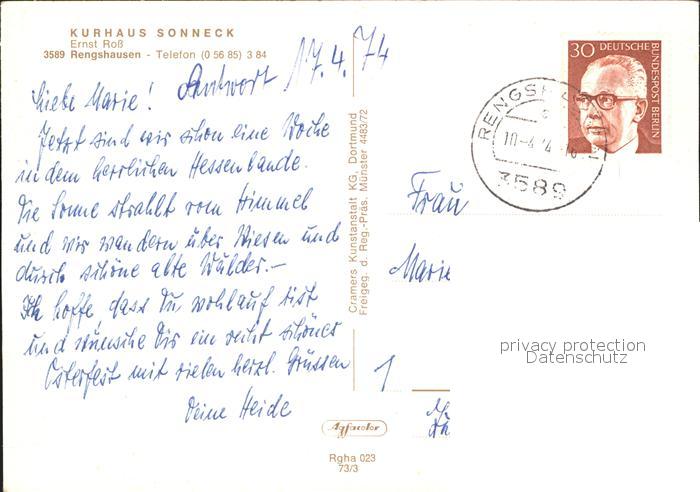 KURHAUS SONNECK
Ernst Roß
3589 Rengshausen - Telefon (0 56 85) 3 84
Antwort 17.4.74
Liebe Marie!
Jetzt sind wir schon eine Woche
in dem herrlichen Hessenlande.
Die Sonne strahlt vom Himmel
und wir wandern über Wiesen und
durch schöne alte Wälder.-
Ich hoffe, dass Du wohlauf bist
und wünsche Dir ein recht schönes
Osterfest mit vielen herzl. Grüssen
Deine Heide
Cramers Kunstanstalt KG, Dortmund
Freigeg. d. Reg.-Präs. Münster 4483/72
30 DEUTSCHE BUNDESPOST BERLIN
3589
Frau
Marie
1
privacy protection
Datenschutz
Agfacolor
Rgha 023
73/3